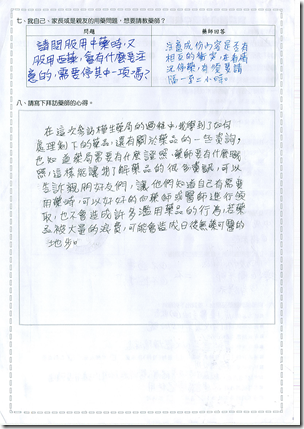 七、我自己、家長或是親友的用藥問題，想要請教藥師？
問題
藥師回答
請問服用中藥時，又
服用西藥，會有什麼要注
意的，需要停其中一項嗎？
注意成份內容是否有
相互的衝突，若有病
況停藥，有需要請
隔一至二小時。
八、請寫下拜訪藥師的心得。
在這次參訪維生藥局的過程中，我學到了如何
處理剩下的藥品，還有關於藥品的一些資訊，
也知道藥局需要有什麼證照，藥師要有什麼職
照，這樣能讓我了解藥品的很多資訊，可以
告訴親朋好友們，讓他們知道自己有需要
用藥時，可以好好的向藥師或醫師進行領
取，也不會造成許多濫用藥品的行為，若藥
品被大量的浪費，可能會造成日後無藥可醫的
地步。